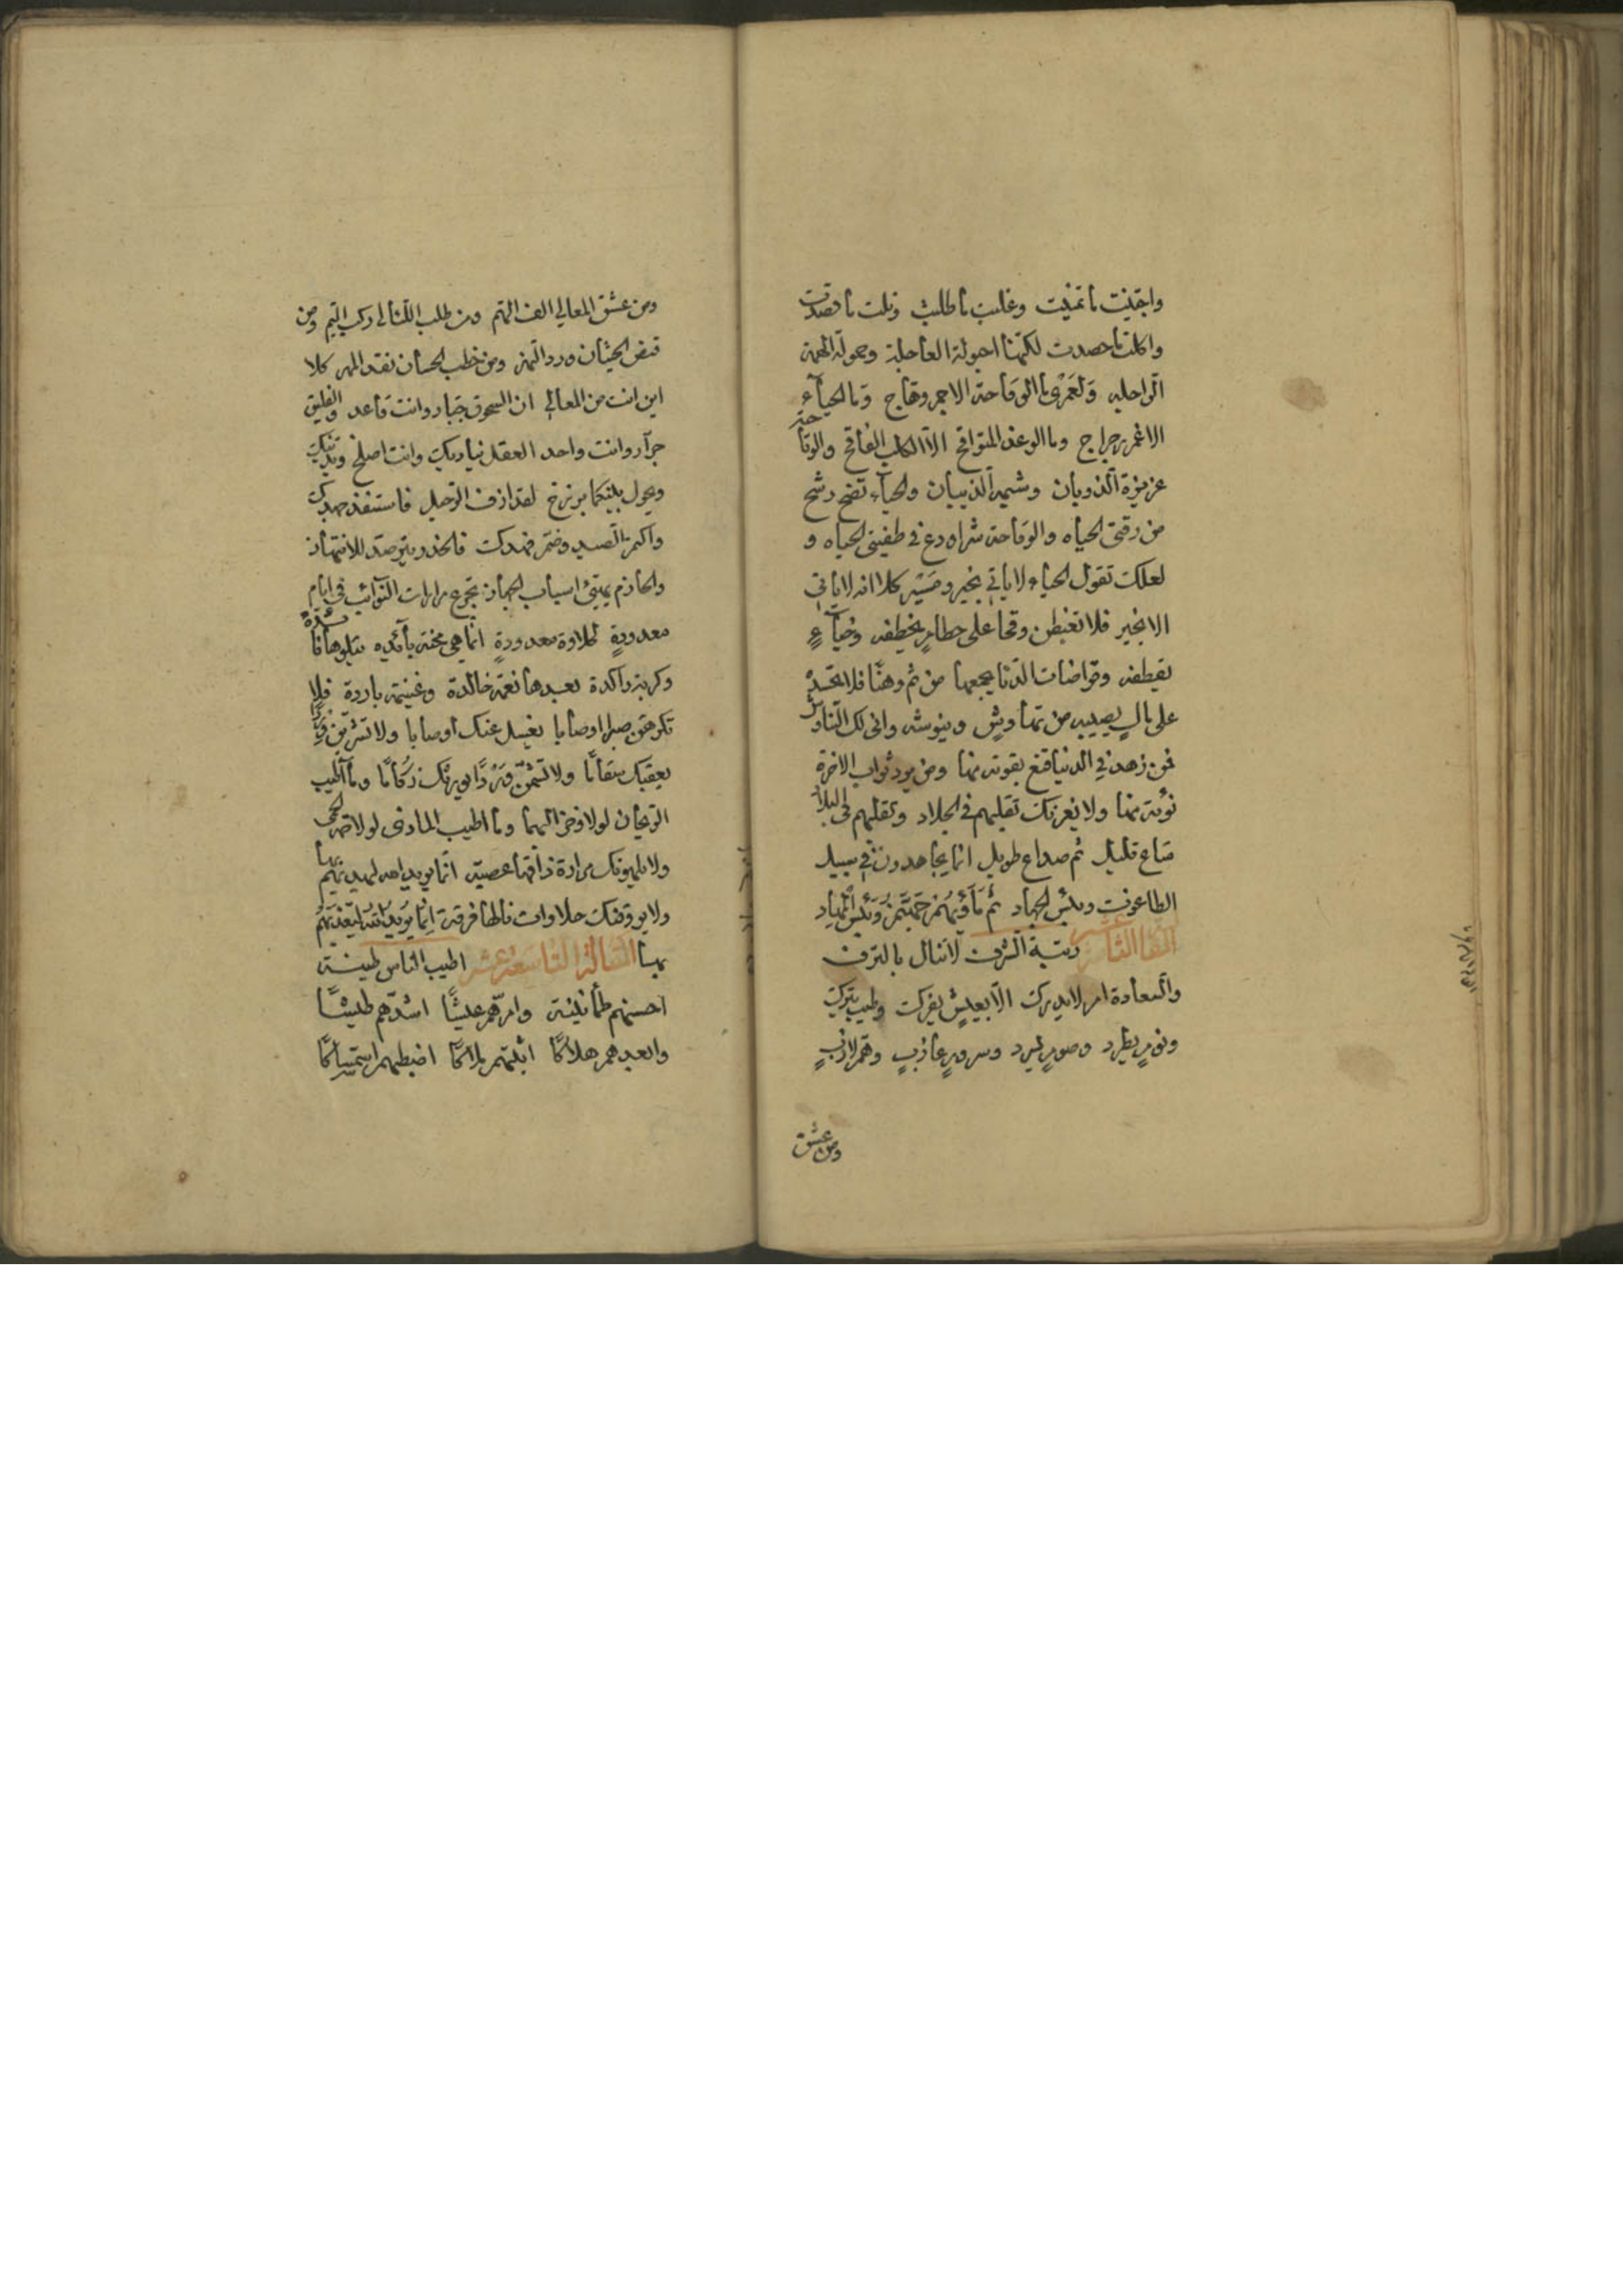 واجتنيت ما تمنيت وغلبت ما طلبت ونلت ما قصدت
واكلت ما حصدت لكنها اجولة العاجلة وحمولة المهمة
الراحلة ولعمري ما الوقاحة الا جمر وهاج وما الحياء
الا غمر رجراج وما الوغد المتواقح الا الكلب الفاقح والوقاحة
غريزة الذوبان وشيمة الذيبان والحياء نضح رشح
من رقتي الحياه والوقاحة شراه دع في طفيتي الحياه و
لعلك تقول الحياء لا ياتي بخير وميسر كلا انه لا ياتي
الا بخير فلا تغبطن وقحا على حطام يخطفه وخباء
يقطفه وقراضات الدنا يجمعها من ثم وهنا فلا تحسده
على مال يصيبه من تهاوش وينوشه وانى لك التناوش
فمن زهد في الدنيا قنع بقوته منها ومن يرد ثواب الاخرة
نؤته منها ولا يغرنك تقلبهم في الجلاد وتقلبهم في البلاد
متاع قليل ثم صداع طويل انما يجاهدون في سبيل
الطاغوت وبئس الجهاد ثم مأويهم جهنم وبئس المهاد
رتبة الشرف لا تنال بالترف
والسعادة امر لا يدرك الا بعيش يفرك وطيب يترك
ونوم يطرد وصوم يسرد وسرور عازب وهم لازب
ومن عشق
ومن عشق المعالي الف الهم ومن طلب اللئالي ركب اليم ومن
قبض الحيتان ورد النهر ومن خطب الحسان نقد المهر كلا
اين انت من المعالي ان السحوق جبار وانت قاعد والفليق
جرار وانت واحد العقل يناديك وانت اصلخ ويدنيك
ويحول بينكما برزخ لقد ازف الرحيل فاستنفد جهدك
واكمز الصيد وضمر فهدك فالحذر يترصد للانتهاز
والحازم يهيئ اسباب الجهاز تجرع مرارات النوائب في ايام
معدودة لحلاوة معدودة انما هي محنة بائده تتلوها فائدة
وكربة راكدة بعدها نعمة خالدة وغنيمة باردة فلا
تكرهن صبرا او صابا يغسل عنك اوصابا ولا تشربن
يعقبك سقاما ولا تشمن وردا يورثك زكاما وما اطيب
الريحان لولا وخز البهما وما اطيب الماذى لولا حمه الحمى
ولا يلهونك مرارة ذاقها عصبة انما يريد الله ليهديهم بها
ولا يروقنك حلاوات نالها فرقة انما يريد الله ليعذبهم
بها المقالة التاسعة عشر اطيب الناس طينة
احسنهم طمأنينة وامرهم عيشا اشدهم طيشا
وابعدهم هلاكا اثبتهم ملاكا اضبطهم استمساكا